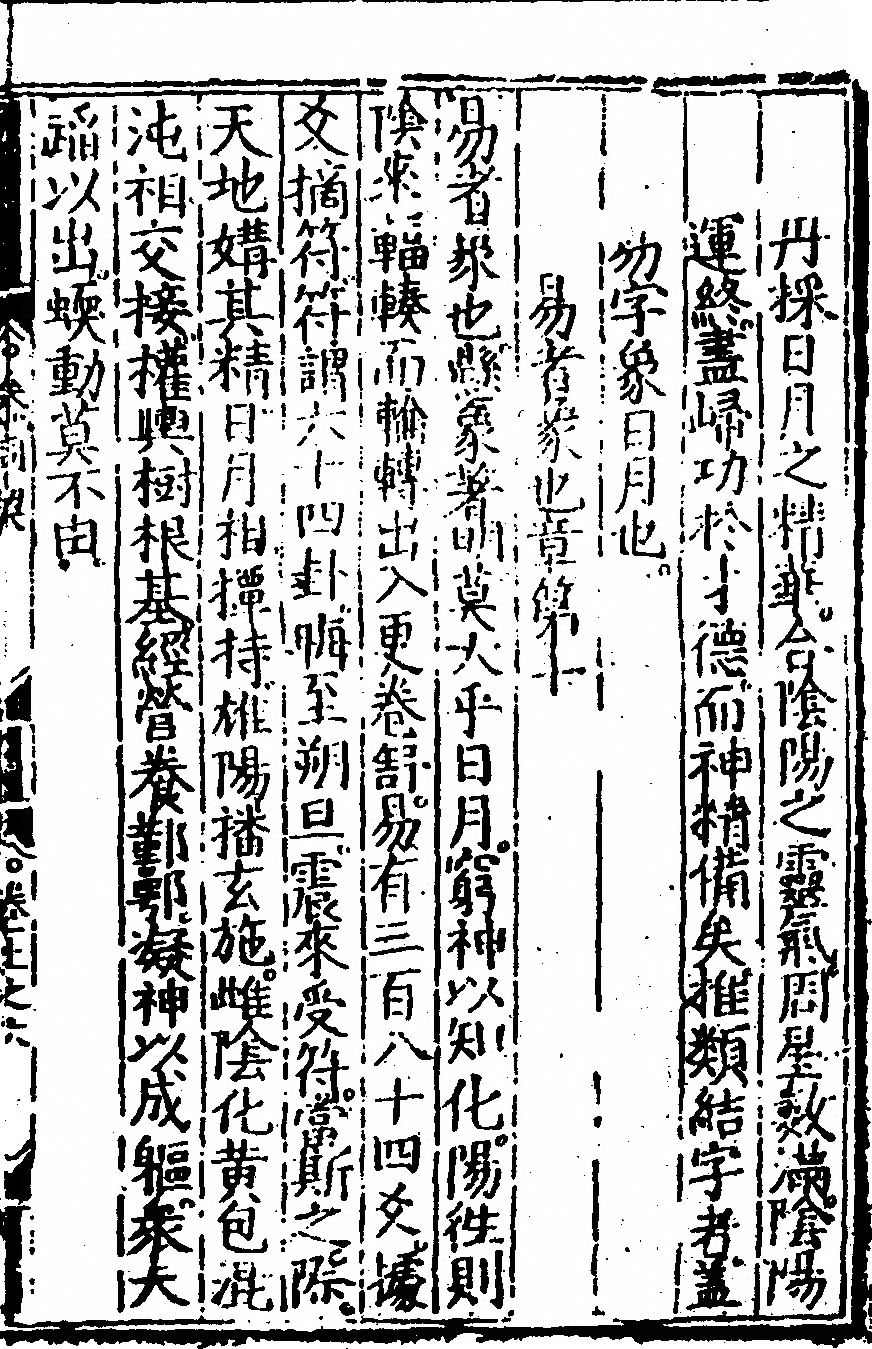 丹採日月之精華合陰陽之靈氣周星數滿陰陽
運終盖歸功於才德而神精備矣推類結字者盖
易字象日月也
易者象也章第十
易者象也縣象著明莫大乎日月窮神以知化陽徃則
陰來輻輳而輪轉出入更卷舒易有三百八十四爻據
爻摘符符謂六十四卦晦至朔旦震來受符當斯之際
天地媾其精日月相撢持雄陽播玄施雌陰化黄包混
沌相交接權輿樹根基經營養鄞鄂凝神以成軀衆夫
蹈以出蝡動莫不由